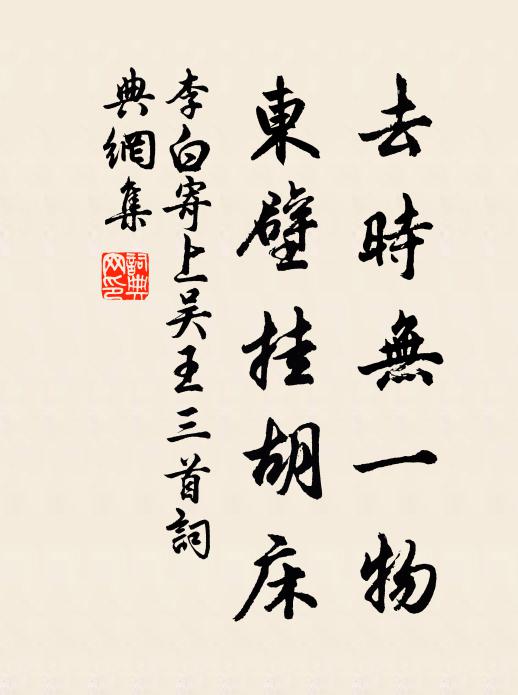 去時無一物
東壁挂胡床
李白寄上吴王三首詞
典網集
詞典
网印